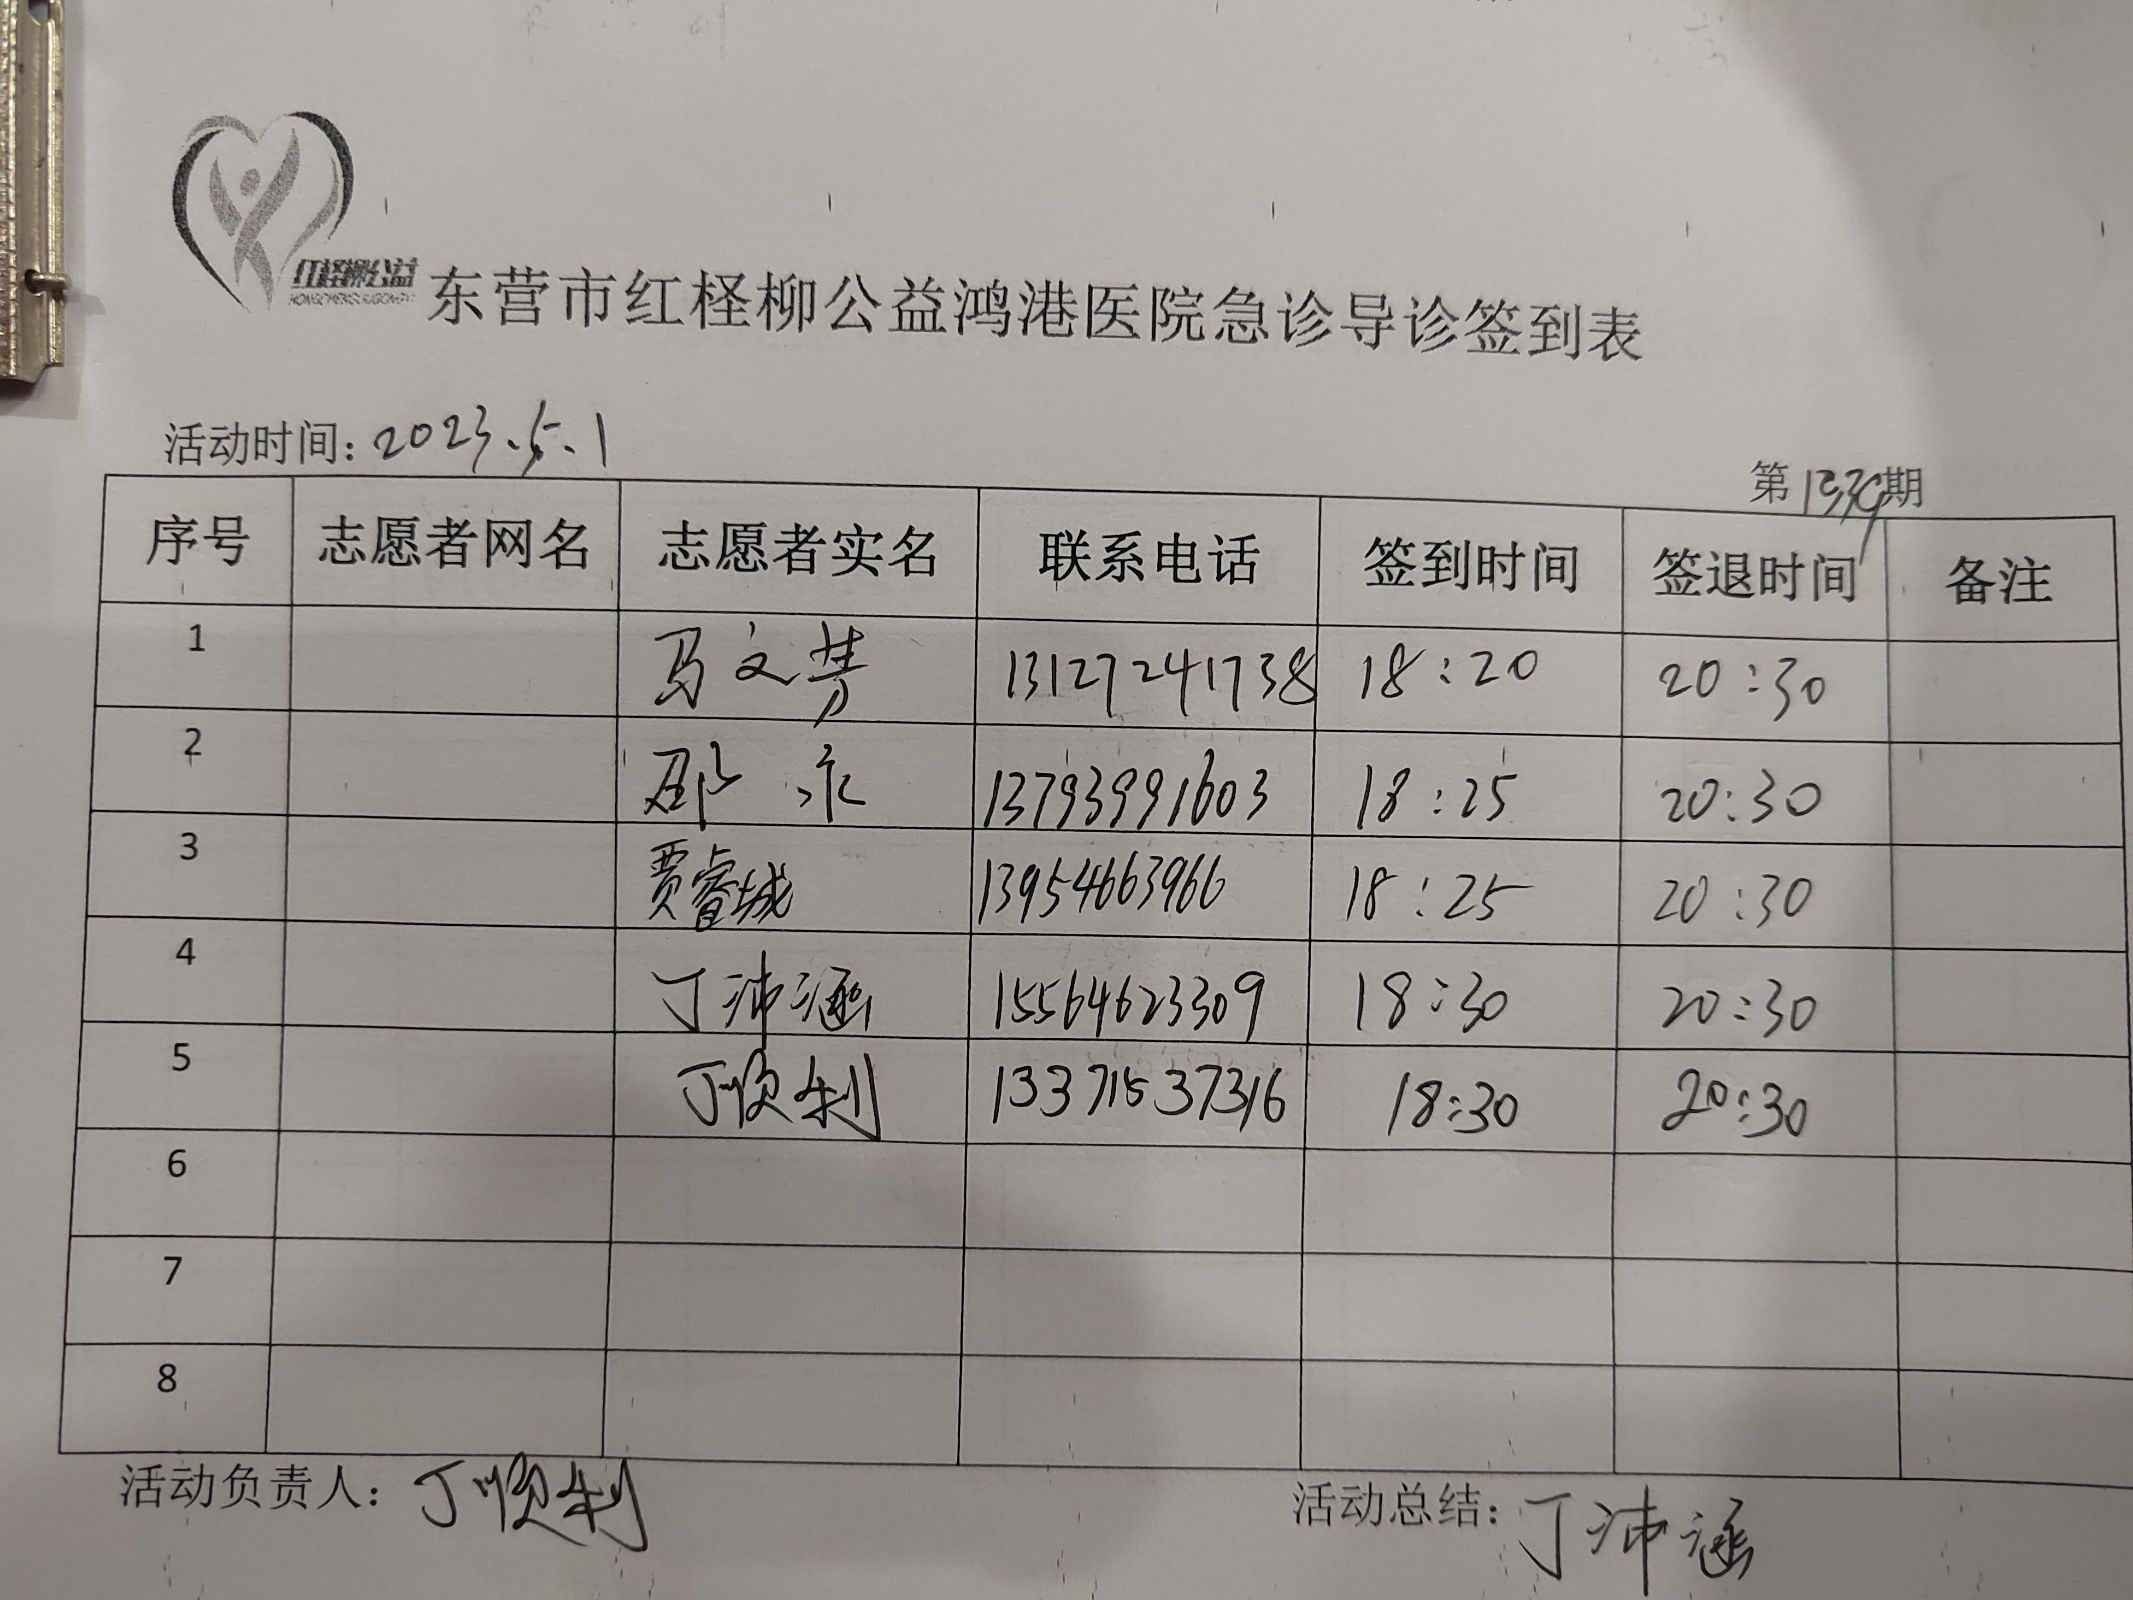 红柽柳公益
东营市红柽柳公益鸿港医院急诊导诊签到表
活动时间: 2023.5.1
第1339期
序号 志愿者网名 志愿者实名 联系电话 签到时间 签退时间 备注
1 马文芳 13127241738 18:20 20:30
2 邵永 13793991603 18:25 20:30
3 贾睿城 13954663966 18:25 20:30
4 丁沛涵 15564623309 18:30 20:30
5 丁顺利 13371537316 18:30 20:30
6
7
8
活动负责人: 丁顺利 活动总结: 丁沛涵